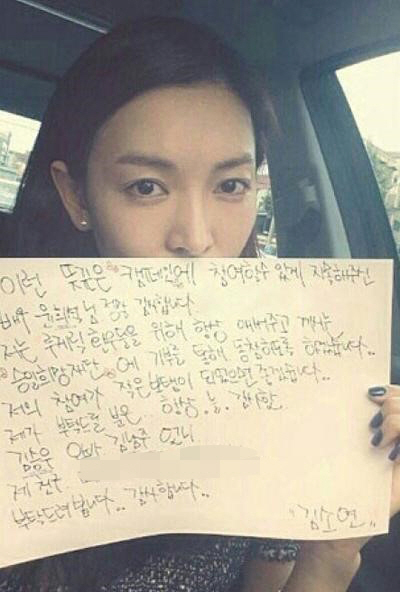 이런 뜻깊은 캠페인에 참여할수 있게 지목해주신
배우 윤희석님 정말 감사합니다.
저는 루게릭 환우들을 위해 항상 애써주고 계시는
승일희망재단 에 기부를 통해 동참하도록 하겠습니다..
저의 참여가 작은보탬이 되었으면 좋겠습니다..
제가 부탁드릴 분은.. 항상.늘.감사한..
김승우 오빠 김남주 언니
제 친구
부탁드려봅니다.. 감사합니다..
"김소연"